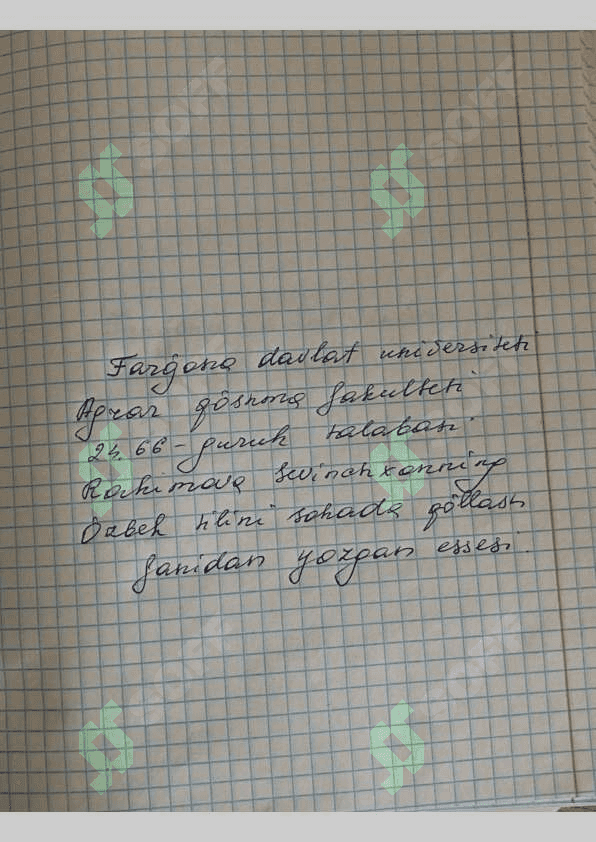 SOFF
SOFF
Farg'ona davlat universiteti
Agrar qo'shma fakulteti
24.66-guruh talabasi
Rahimova Sevinchxonning
O'zbek tilini sohada qo'llash
fanidan yozgan essesi.
SOFF
SOFF